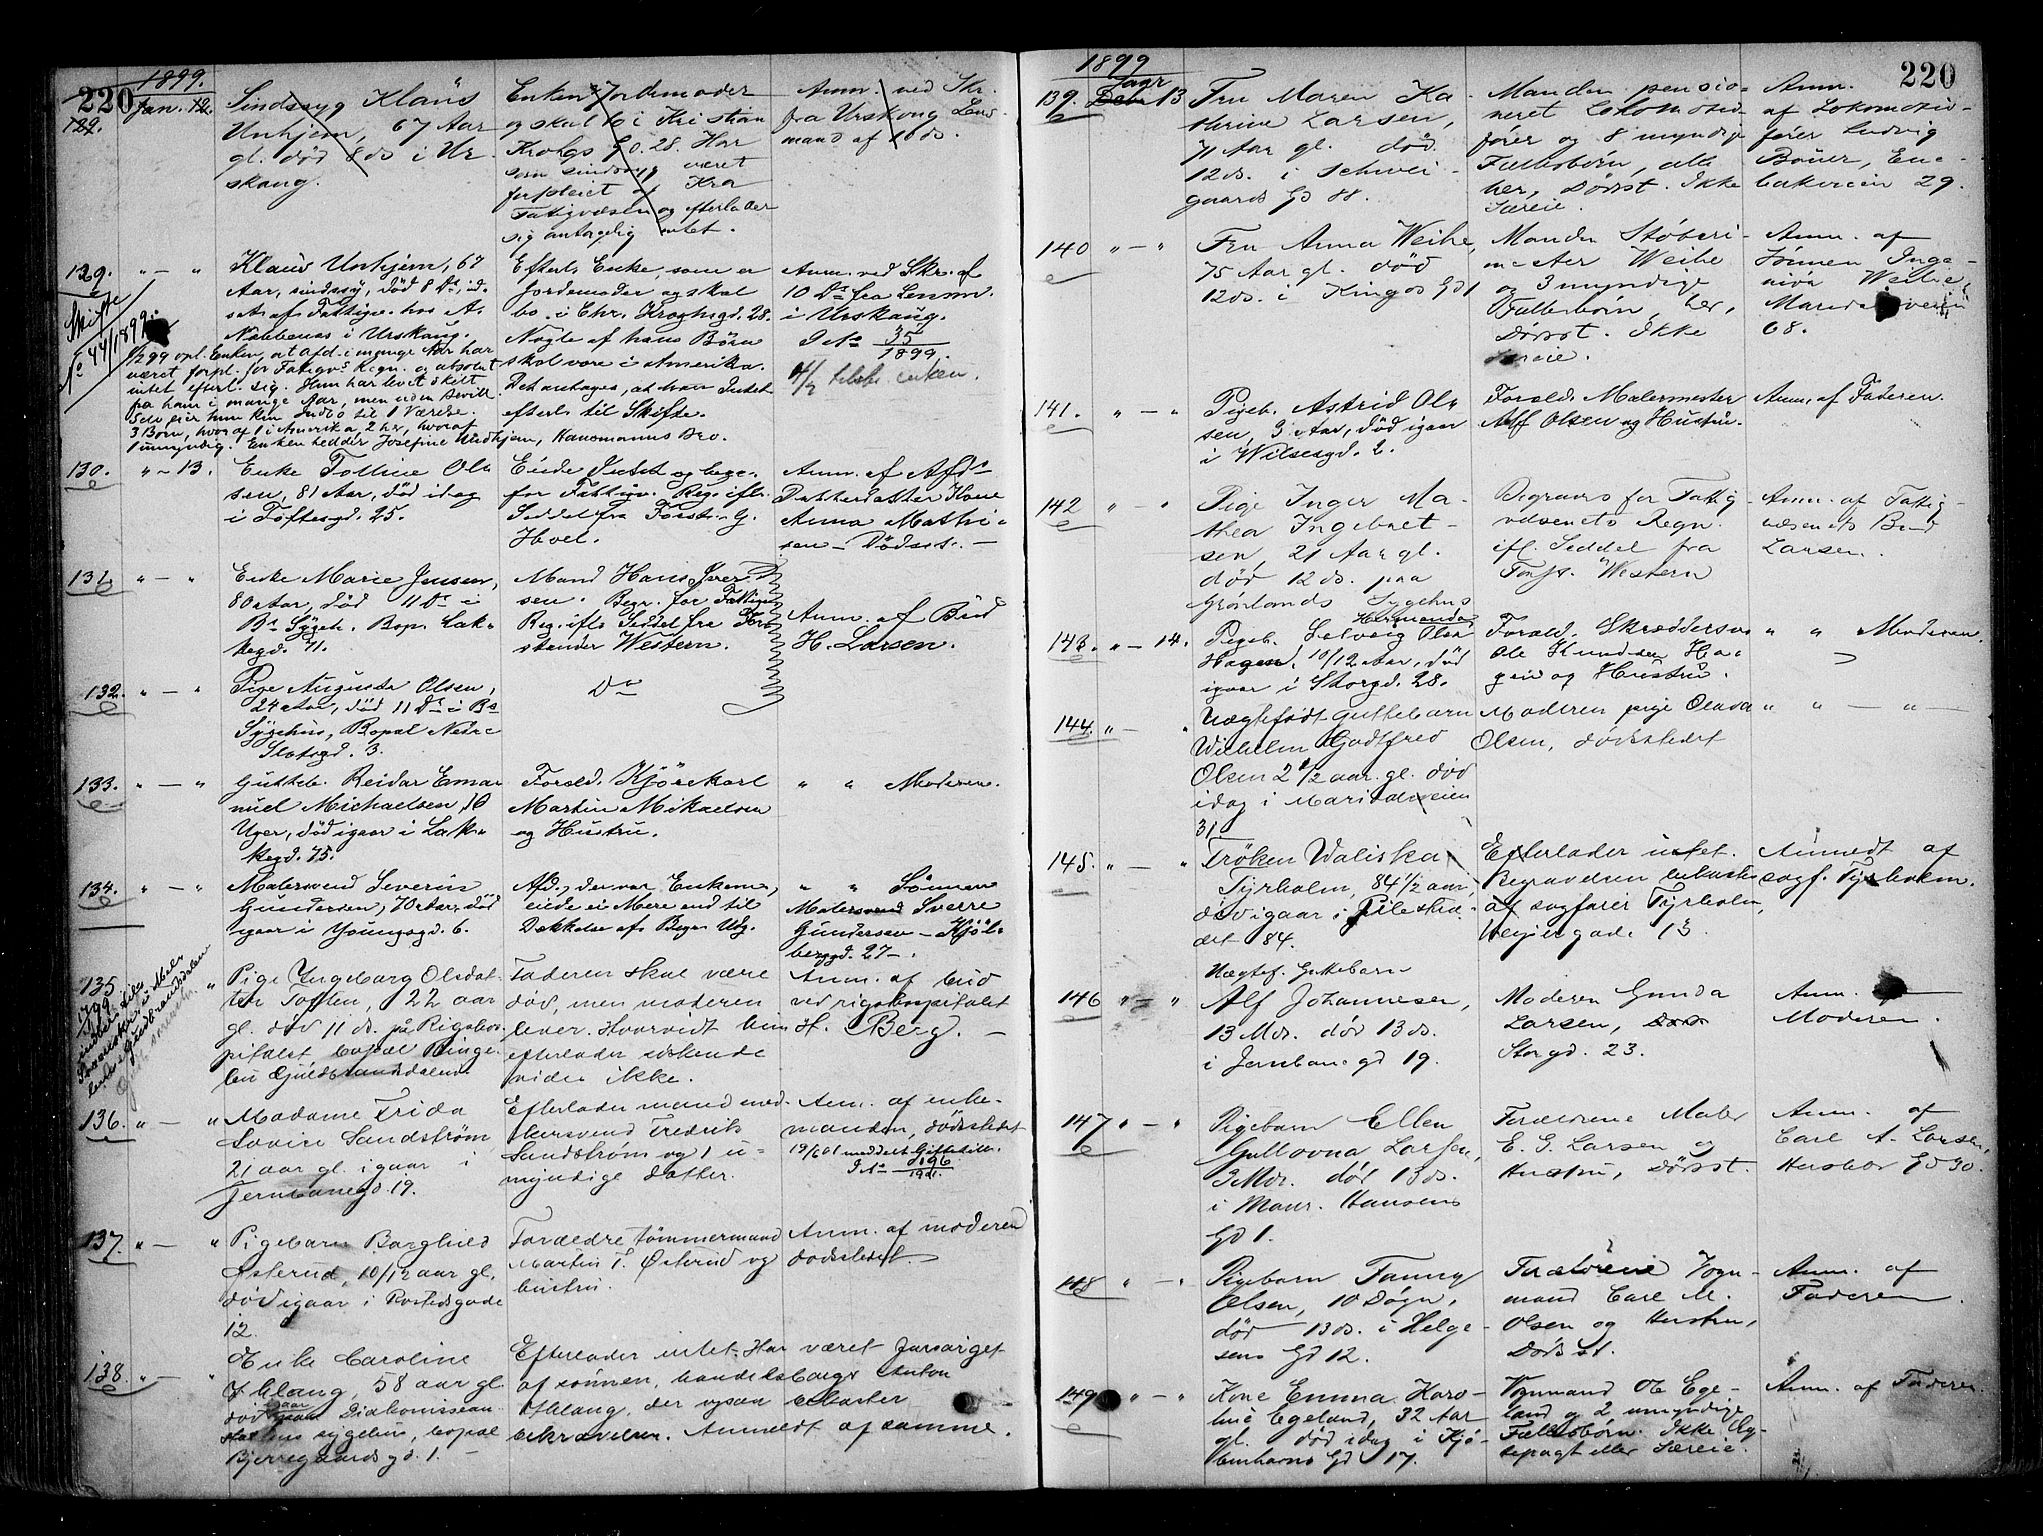 220
1899.
129. Jan. 12.
Sindssyg Klaus
Unhjem, 67 Aar
gl. død 8 ds i Ur-
skaug.
Enken Jordemoder
og skal bo i Kristian
Krohgs Gd. 28. Har
som sindssyg været
forpleiet af Kra
Fattigvæsen og efterlader
sig antagelig intet.
Anm. ved Skr.
fra Urskoug Lens-
mand af 10 ds.
129. " — "
Klaus Unhjem, 67
Aar, sindssyg, død 8 Ds, ud-
sat af Fattigv. hos A.
Nabbenæs i Urskaug.
Efterl. Enke, som er
Jordemoder og skal
bo i Chr. Kroghsgd. 28.
Nogle af hans Børn
skal være i Amerika.
Det antages, at han Intet
efterl. til Skifte.
Anm. ved Skr. af
10 Ds fra Lensm.
i Urskaug.
J No 35
1899.
tilsk. enken.
Skifte
No 44/1899.
opl. Enken, at Afd. i mange Aar har
været forpl. for Fatigvs Regn. og absolut
intet efterl. sig. Hun har levet skilt
fra ham i mange Aar, men uden Bevill.
Selv eier hun kun Indbo til 1 Værelse.
3 Børn, hvoraf 1 i Amerika, 2 her, hvoraf
1 umyndig. Enken hedder Josefine Undhjem, Hansmanns Bro.
130. " - 13.
Enke Tolline Ol-
sen, 81 Aar, død idag
i Toftesgd. 25.
Eiede Intet og begr.
for Fattigv. Reg. ifl.
Seddel fra Forst. G.
Hoel.
Anm. af Afds
Datterdatter Kone
Anna Mathi-
sen — Dødsst. —
131. " — "
Enke Marie Jensen,
80 Aar, død 11 Ds i
Bs Sygeh. Bop. Lak-
kegd. 71.
Mand Hans Iver
sen. Begr. for Fattigv.
Reg. ifl. Seddel fra For-
stander Western.
Anm. af Bud
H. Larsen.
132. " — "
Pige Augusta Olsen,
24 Aar, død 11 Ds i Bs
Sygehus, Bopæl Nedre
Slotsgd. 3.
Do
133. " — "
Gutteb. Reidar Ema-
nuel Michaelsen, 10
Uger, død igaar i Lak-
kegd. 75.
Foræld. Kjørekarl
Martin Mikaelsen
og Hustru.
" " Moderen.
134. " — "
Malersvend Severin
Gundersen, 70 Aar, død
igaar i Youngsgd. 6.
Afd., der var Enkema.,
eiede ei Mere end til
Dækkelse af Begr. Udg.
" " Sønnen
Malersvend Sverre
Gundersen — Kjøl-
berggd. 27 —.
135 "
Pige Ingeborg Olsdat-
ter Toften, 22 aar
gl. død 11 ds. på Rigshos-
pitalet, bopæl Ringe-
bu Gudbrandsdalen.
Faderen skal være
død, men moderen
lever. Hvorvidt hun
efterlader sig
vides ikke.
Anm. af bud
ved rigshospitalet
H. Berg. —
136. " — "
Madame Frida
Lovise Sandstrøm
21 aar gl. igaar i
Jernbanegd. 19.
Efterlader mand
Fredrik
Sandstrøm og 1 u-
myndige datter.
Anm. af enke-
manden, dødsstedet
19/6 01 meddelt Giftetill.
J No 3196
1901
137. " — "
Pigebarn Borghild
Østerud, 10/12 aar gl.
død igaar i Rostedsgade
12.
Forældre tømmermand
Martin T. Østerud og
hustru.
Anm. af moderen
dødsstedet —
138. " — "
Enke Caroline
Øhlang, 58 aar gl.
død igaar Diakonissean-
staltens sygehus, bopæl
Bjerregaardsgd. 1. —
Efterlader intet. Har været forsørget
af sønnen, handelsborger Anton
Øhlang, der ogsaa bekoster
bekravelsen. Anmeldt af samme.
220
1899
139. Janr 13
Fru Maren Ka-
therine Larsen,
71 Aar gl. død
12 ds. i Schwei-
gaards Gd 88.
Manden pensio-
neret Lokomotiv-
fører og 8 myndige
Fællesbørn, alle
her, Dødsst. Ikke
Særeie.
Anm.
af Lokomotiv-
fører Ludvig
Bøner, Ene-
bakveien 29.
140 " — "
Fru Anna Weihe,
75 Aar gl. død
12 ds. i Kingos Gd 1
Manden Støberi-
mester Weihe
og 3 myndige
Fællesbørn, her,
Dødsst. Ikke
Særeie.
Anm. af
Sønnen Inge-
niør Weihe,
Maridalsveien
68.
141. " — "
Pigeb. Astrid Ol-
sen, 3 Aar, død igaar
i Wilsesgd. 2.
Foræld. Malermester
Alf Olsen og Hustru.
Anm. af Faderen.
142 " — "
Pige Inger Ma-
thea Ingebret-
sen, 21 Aar gl.
død 12 ds. paa
Grønlands Sygehus
Begraves for Fattig
væsenets Regn.
ifl. Seddel fra
Forst. Western
Anm. af Fattig-
væsenets Bud
Larsen.
143. " — 14.
Pigeb. Solveig Hermanda Olsen
Hagen, 10/12 Aar, død
igaar i Storgd. 28.
Foræld. Skræddersv.
Ole Knudsen Ha-
gen og Hustru.
" " Moderen.
144. " — "
Uægtefødt Guttebarn
Wilhelm Godtfred
Olsen 2 1/2 aar gl. død
idag i Maridalsveien
31.
Moderen pige Olava
Olsen, dødsstedet
" " — " —
145. " — "
Frøken Valiska
Tyrholm, 84 1/2 aar,
død igaar i Pilestræ-
det 84.
Efterlader intet.
Begravelsen bekostes
af sagfører Tyrholm,
Meyergade 13
Anmeldt af
sagf. Tyrholm.
146 " — "
Uægtef. Guttebarn
Alf Johannesen,
13 Mdr. død 13 ds.
i Jernbanegd 19.
Moderen Gunda
Larsen,
Storgd. 23.
Anm. af
Moderen.
147 " — "
Pigebarn Ellen
Gullovna Larsen,
3 Mdr. død 13 ds.
i Maur. Hansens
Gd 1.
Forældrene Maler
E. G. Larsen og
Hustru, Dødsst.
Anm. af
Carl A. Larsen,
Herslebs Gd 30.
148 " — "
Pigebarn Fanny
Olsen, 10 Døgn,
død 13 ds. i Helge-
sens Gd 12.
Forældrene Vogn-
mand Carl M.
Olsen og Hustru,
Dødsst.
Anm. af
Faderen.
149 " — "
Kone Emma Karo-
line Egeland, 32 Aar
gl. død idag i Kjø-
benhavns Gd 17.
Vognmand O. Ege-
land og 2 umyndige
Fællesbørn. Ikke Æg-
tepagt eller Særeie.
Anm. af Faderen.